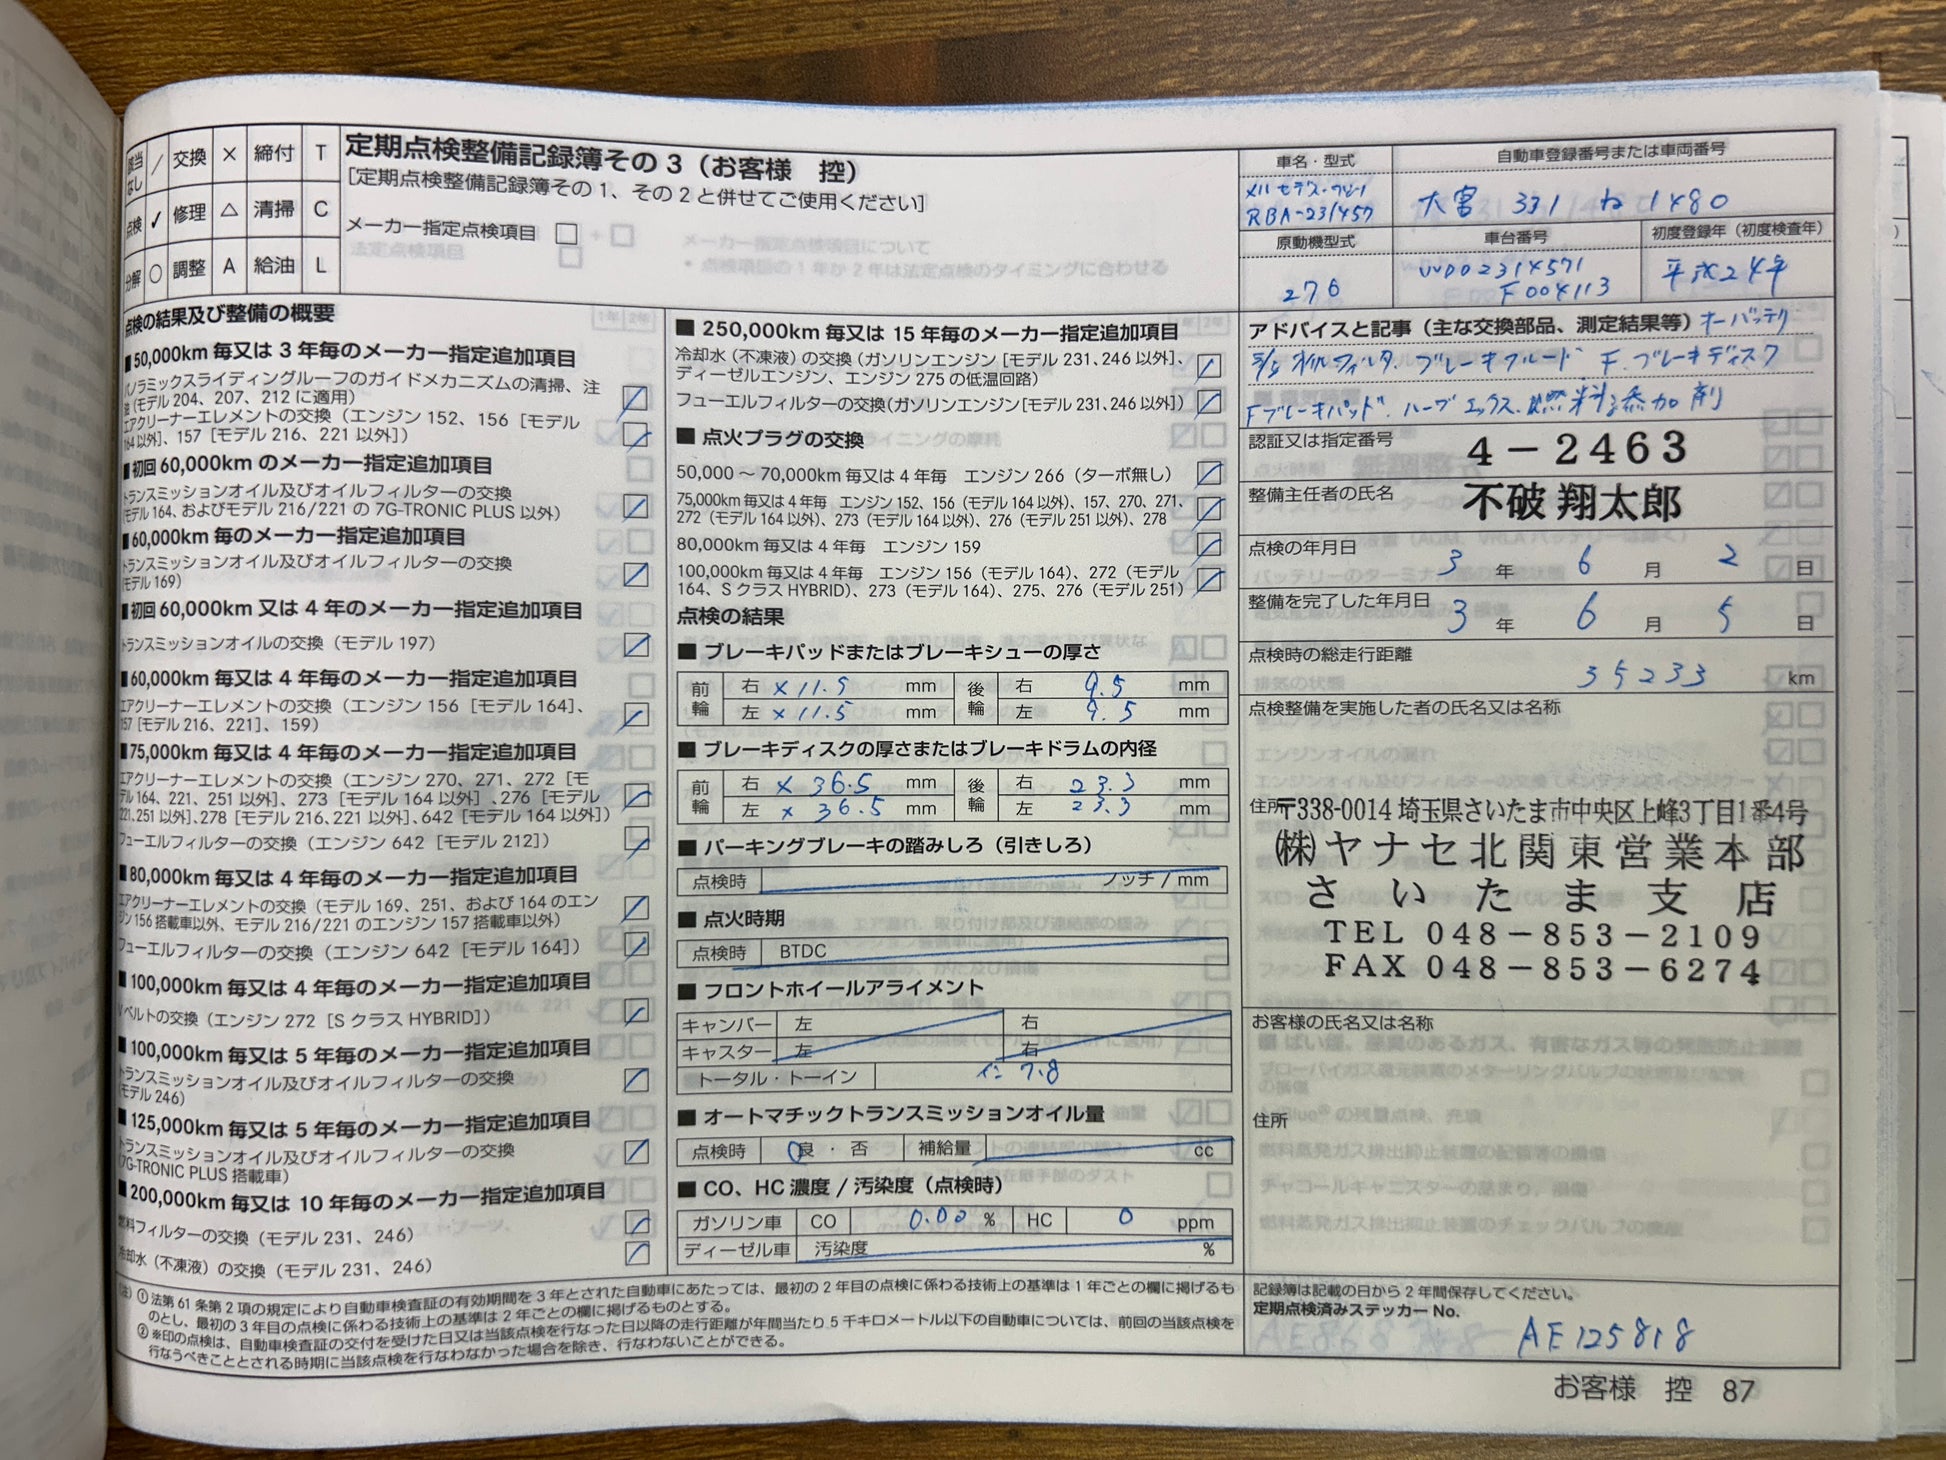 該当なし / 交換 × 締付 T
点検 ✓ 修理 △ 清掃 C
分解 ○ 調整 A 給油 L
定期点検整備記録簿その3（お客様 控）
[定期点検整備記録簿その1、その2と併せてご使用ください]
メーカー指定点検項目 □
点検の結果及び整備の概要
■50,000km毎又は3年毎のメーカー指定追加項目
パノラミックスライディングルーフのガイドメカニズムの清掃、注
油（モデル204、207、212に適用）
エアクリーナーエレメントの交換（エンジン152、156［モデル
164以外］、157［モデル216、221以外］）
■初回60,000kmのメーカー指定追加項目
トランスミッションオイル及びオイルフィルターの交換
（モデル164、およびモデル216/221の7G-TRONIC PLUS以外）
■60,000km毎のメーカー指定追加項目
トランスミッションオイル及びオイルフィルターの交換
（モデル169）
■初回60,000km又は4年のメーカー指定追加項目
トランスミッションオイルの交換（モデル197）
■60,000km毎又は4年毎のメーカー指定追加項目
エアクリーナーエレメントの交換（エンジン156［モデル164］、
157［モデル216、221］、159）
■75,000km毎又は4年毎のメーカー指定追加項目
エアクリーナーエレメントの交換（エンジン270、271、272［モ
デル164、221、251以外］、273［モデル164以外］、276［モデル
221、251以外］、278［モデル216、221以外］、642［モデル164以外］）
フューエルフィルターの交換（エンジン642［モデル212］）
■80,000km毎又は4年毎のメーカー指定追加項目
エアクリーナーエレメントの交換（モデル169、251、および164のエン
ジン156搭載車以外、モデル216/221のエンジン157搭載車以外）
フューエルフィルターの交換（エンジン642［モデル164］）
■100,000km毎又は4年毎のメーカー指定追加項目
Vベルトの交換（エンジン272［SクラスHYBRID］）
■100,000km毎又は5年毎のメーカー指定追加項目
トランスミッションオイル及びオイルフィルターの交換
（モデル246）
■125,000km毎又は5年毎のメーカー指定追加項目
トランスミッションオイル及びオイルフィルターの交換
（7G-TRONIC PLUS搭載車）
■200,000km毎又は10年毎のメーカー指定追加項目
燃料フィルターの交換（モデル231、246）
冷却水（不凍液）の交換（モデル231、246）
■250,000km毎又は15年毎のメーカー指定追加項目
冷却水（不凍液）の交換（ガソリンエンジン［モデル231、246以外］、
ディーゼルエンジン、エンジン275の低温回路）
フューエルフィルターの交換（ガソリンエンジン［モデル231、246以外］）
■点火プラグの交換
50,000～70,000km毎又は4年毎 エンジン266（ターボ無し）
75,000km毎又は4年毎 エンジン152、156（モデル164以外）、157、270、271、
272（モデル164以外）、273（モデル164以外）、276（モデル251以外）、278
80,000km毎又は4年毎 エンジン159
100,000km毎又は4年毎 エンジン156（モデル164）、272（モデル
164、SクラスHYBRID）、273（モデル164）、275、276（モデル251）
点検の結果
■ブレーキパッドまたはブレーキシューの厚さ
前輪 右 ×11.5 mm 後輪 右 9.5 mm
左 ×11.5 mm 左 9.5 mm
■ブレーキディスクの厚さまたはブレーキドラムの内径
前輪 右 ×36.5 mm 後輪 右 23.3 mm
左 ×36.5 mm 左 23.3 mm
■パーキングブレーキの踏みしろ（引きしろ）
点検時 ノッチ/mm
■点火時期
点検時 BTDC
■フロントホイールアライメント
キャンバー 左 右
キャスター 左 右
トータル・トーイン イン 7.8
■オートマチックトランスミッションオイル量
点検時 良・否 補給量 cc
■CO、HC濃度/汚染度（点検時）
ガソリン車 CO 0.00 % HC 0 ppm
ディーゼル車 汚染度 %
車名・型式
メルセデス・ベンツ
RBA-231457
自動車登録番号または車両番号
大宮 331 ね 1480
原動機型式
276
車台番号
WDD2314571
F004113
初度登録年（初度検査年）
平成24年
アドバイスと記事（主な交換部品、測定結果等）
オイルフィルタ. ブレーキフルード. F.ブレーキディスク
Fブレーキパッド. 燃料添加剤
認証又は指定番号 4-2463
整備主任者の氏名 不破 翔太郎
点検の年月日 3 年 6 月 2 日
整備を完了した年月日 3 年 6 月 5 日
点検時の総走行距離 35233 km
点検整備を実施した者の氏名又は名称
住所 〒338-0014 埼玉県さいたま市中央区上峰3丁目1番4号
（株）ヤナセ北関東営業本部
さいたま支店
TEL 048-853-2109
FAX 048-853-6274
お客様の氏名又は名称
住所
記録簿は記載の日から2年間保存してください。
定期点検済みステッカーNo. AE125818
（注）①法第61条第2項の規定により自動車検査証の有効期間を3年とされた自動車にあたっては、最初の2年目の点検に係わる技術上の基準は1年ごとの欄に掲げるも
のとし、最初の3年目の点検に係わる技術上の基準は2年ごとの欄に掲げるものとする。
②※印の点検は、自動車検査証の交付を受けた日又は当該点検を行なった日以降の走行距離が年間当たり5千キロメートル以下の自動車については、前回の当該点検を
行なうべきこととされる時期に当該点検を行なわなかった場合を除き、行なわないことができる。
お客様 控 87